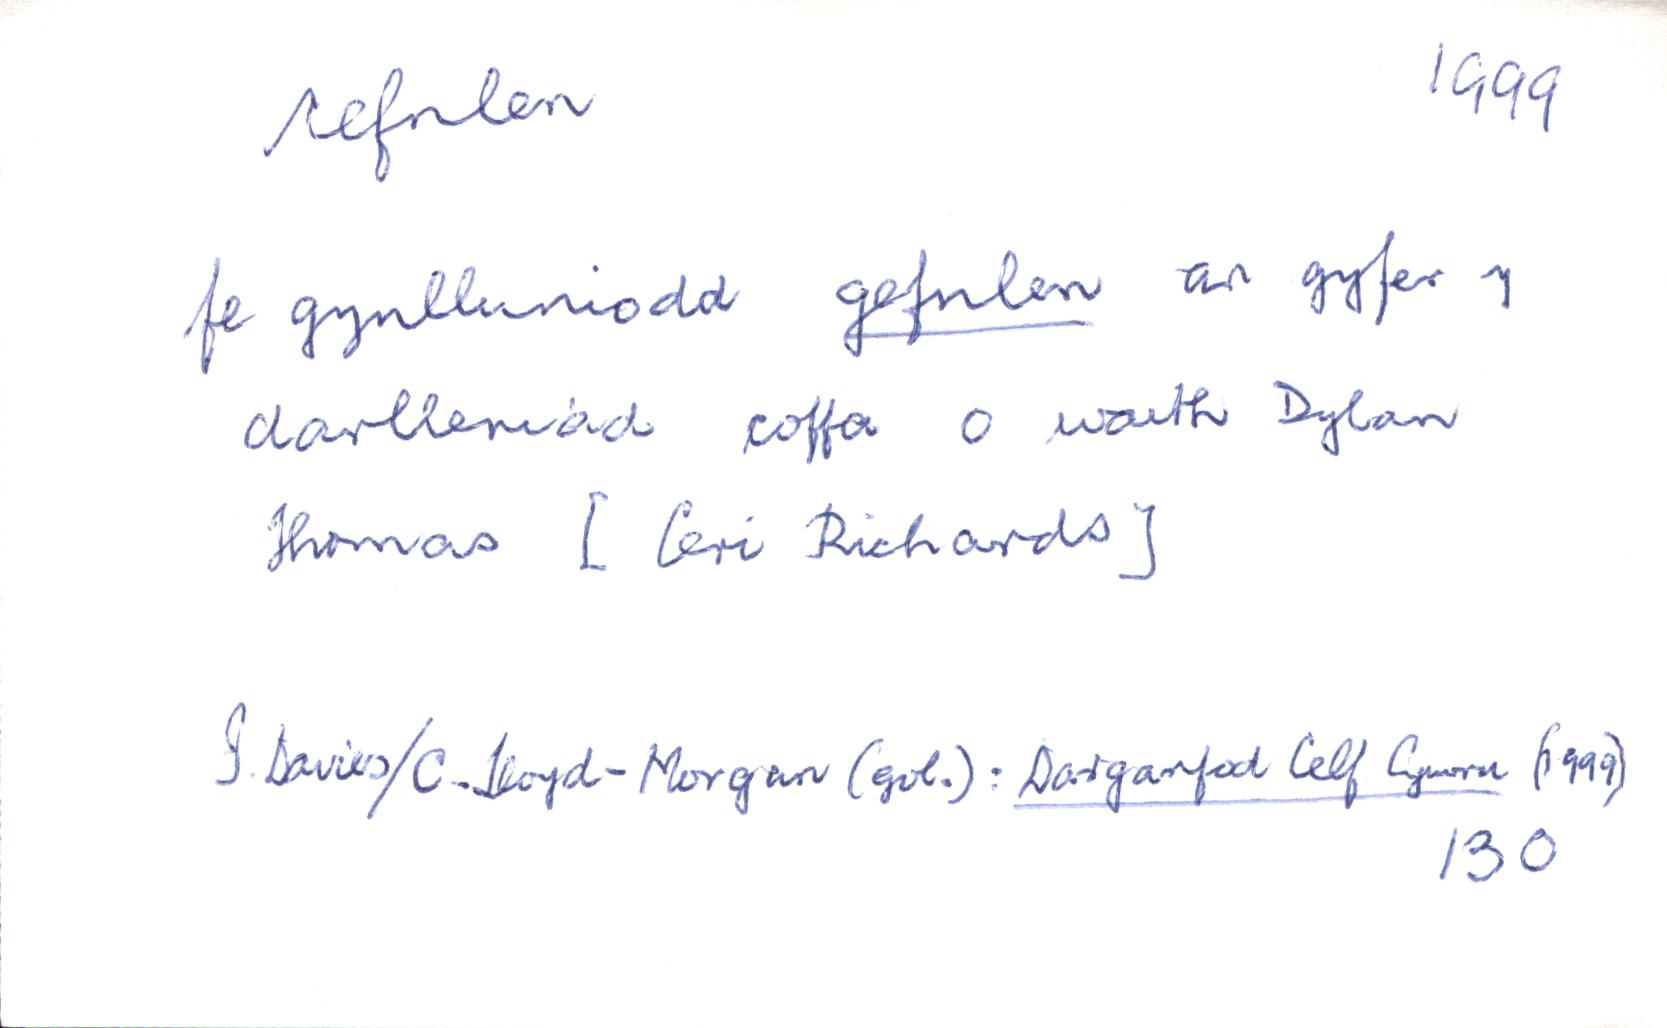 cefnlen 1999
fe gynlluniodd gefnlen ar gyfer y
darlleniad coffa o waith Dylan
Thomas [Ceri Richards]
I. Davies/C. Lloyd-Morgan (gol.): Darganfod Celf Cymru (1999)
130